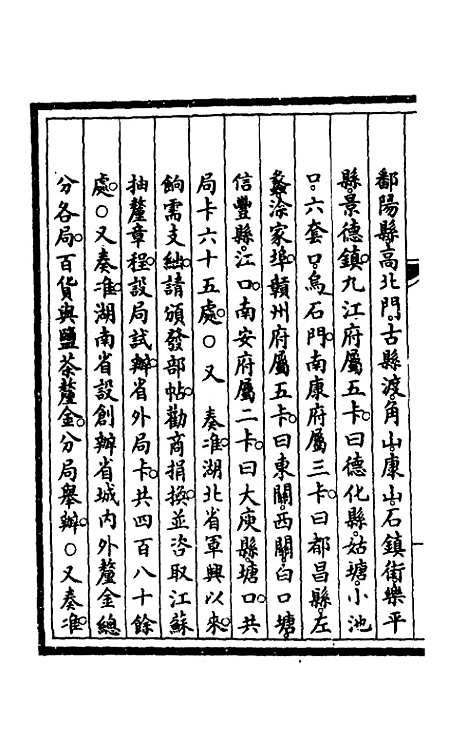 鄱陽縣。高北門。古縣渡。角山。康山。石鎮街。樂平
縣。景德鎮。九江府屬五卡。曰德化縣。姑塘。小池
口。六套口。烏石門。南康府屬三卡。曰都昌縣。左
蠡。涂家埠。贛州府屬五卡。曰東關。西關。白口塘。
信豐縣。江口。南安府屬二卡。曰大庾縣。塘口。共
局卡六十五處。○又奏准。湖北省軍興以來。
餉需支絀。請頒發部帖。勸商捐換。並咨取江蘇
抽釐章程。設局試辦。省外局卡。共四百八十餘
處。○又奏准。湖南省設創辦省城內外釐金總
分各局。百貨與鹽茶釐金。分局舉辦。○又奏准。